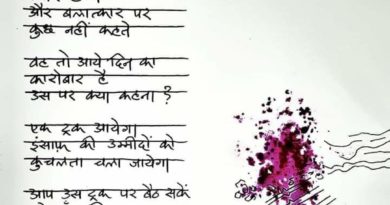 और बलात्कार पर
कुछ नहीं कहते
वह तो आये दिन का
कारोबार है
उस पर क्या कहना ?
एक ट्रक आयेगा
इंसाफ़ की उम्मीदों को
कुचलता चला जायेगा
आप उस ट्रक पर बैठ सकें